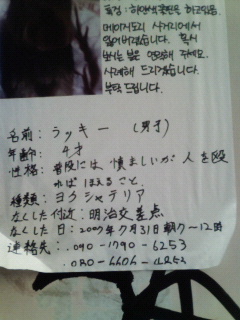 특징: 하얀색 목줄을 하고있음.
메이지도리 사거리에서
잃어버렸습니다. 혹시
보시는 분은 연락해 주세요.
사례해 드리겠습니다.
부탁드립니다.
名前: ラッキー (男才)
年齢: 4才
性格: 普段には慎ましいが人を殴
ればほえること。
種類: ヨクシャテリア
なくした付近: 明治交差点
なくした日: 2007年7月31日朝7~12時
連絡先: .090-1790-6253
.080-6606-4853